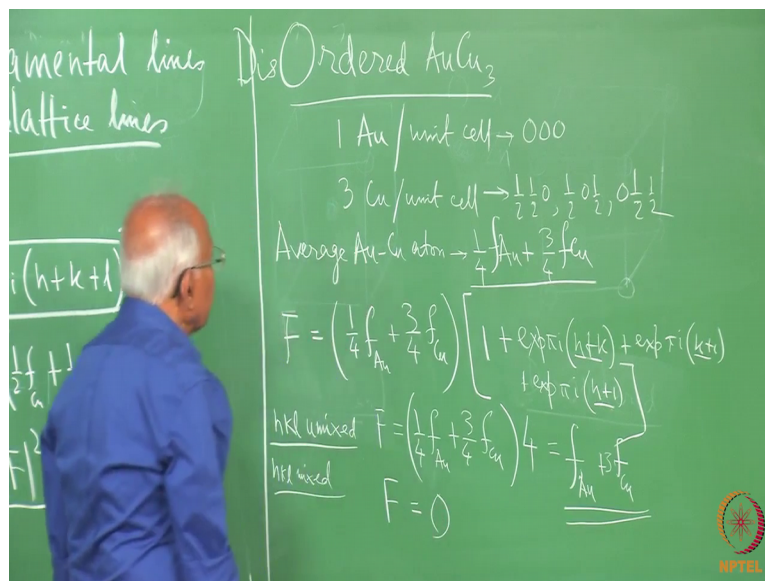 amental lines
lattice lines
i(h+k+l)
DisOrdered AuCu₃
1 Au/unit cell → 000
3 Cu/unit cell → 1/2 1/2 0, 1/2 0 1/2, 0 1/2 1/2
Average Au-Cu atom → 1/4 fAu + 3/4 fCu
F = (1/4 f_Au + 3/4 f_Cu) [1 + exp πi(h+k) + exp πi(k+l)
+ exp πi(h+l)]
hkl unmixed F = (1/4 f_Au + 3/4 f_Cu) 4 = f_Au + 3f_Cu
hkl mixed
F = 0
NPTEL